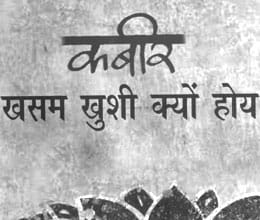 कबीर
खसम खुशी क्यों होय